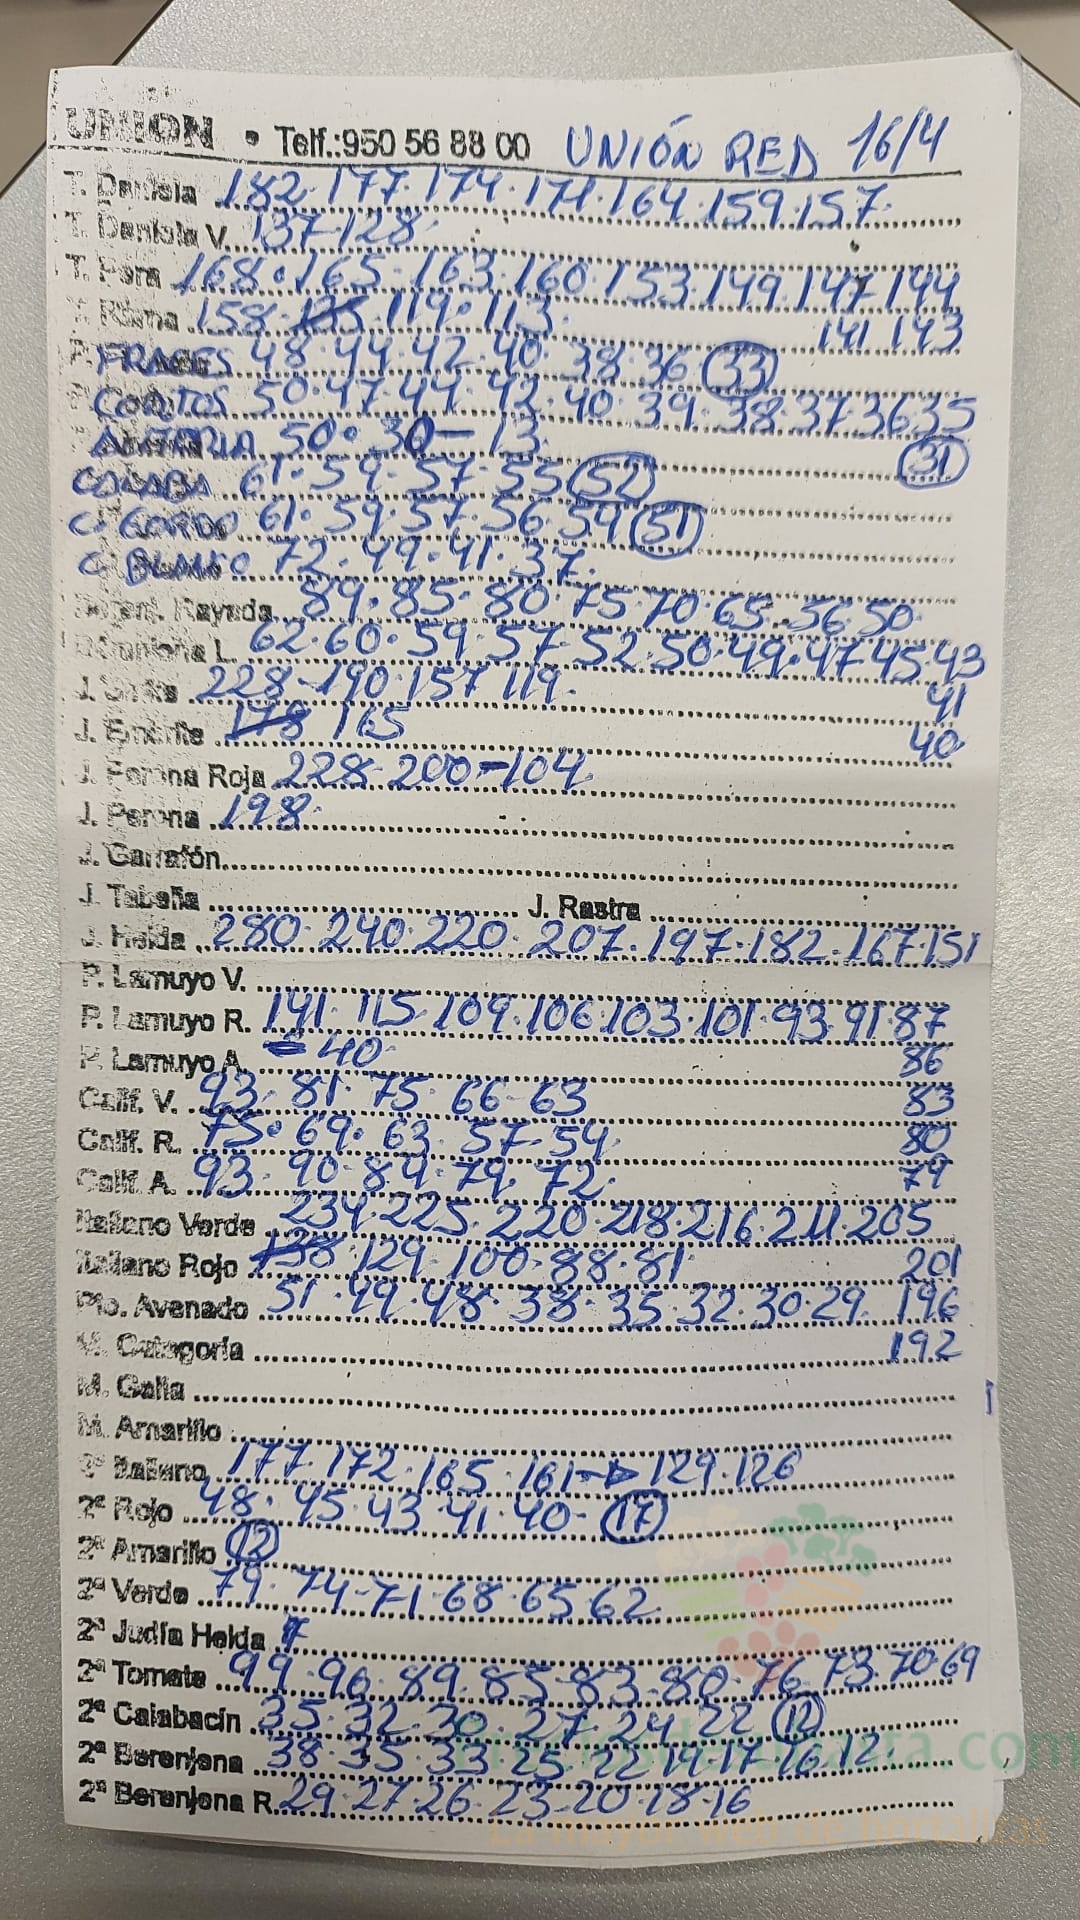 UNION • Telf.:950 56 88 00 UNIÓN RED 16/4
T. Daniela 182. 177. 174. 171. 164. 159. 157.
T. Daniela V. 137-128
T. Pera 168. 165- 163. 160. 153. 149. 147- 144
141 143
T. Rama 158- 135 119. 113.
FRANCES 48. 44. 42. 40. 38. 36 (33)
CORTOS 50. 47. 44. 42. 40. 39. 38. 37. 36 35
(31)
50. 30- 13.
61. 59- 57- 55 (52)
C. GORDO 61. 59. 57. 56. 54 (51)
C. BLANCO 72. 49. 41. 37.
Berenj. Rayada 89. 85. 80. 75. 70. 65- 56. 50
L. 62. 60. 59. 57- 52. 50. 49. 47. 45. 43
41
40
J. Strike 228- 190. 157 119.
J. Emerite 178 165
J. Perona Roja 228- 200-104
J. Perona 198
J. Garrafón
J. Tabella J. Rastra
J. Helda 280. 240. 220. 207. 197. 182. 167. 151
P. Lamuyo V.
P. Lamuyo R. 141. 115. 109. 106. 103. 101. 93. 91. 87
86
83
80
79
P. Lamuyo A. 40
Calif. V. 93. 81. 75. 66- 63
Calif. R. 75. 69. 63. 57- 54.
Calif. A. 93. 90- 84. 79. 72.
Italiano Verde 234. 225. 220. 218. 216. 211. 205
201
196
192
Italiano Rojo 138 129. 100. 88. 81
Pto. Avenado 51. 49. 48. 38. 35. 32. 30. 29.
M. Categoría
M. Galia
M. Amarillo
2ª Italiano 177. 172. 165. 161-> 129. 126
2ª Rojo 48. 45. 43. 41. 40- (17)
2ª Amarillo (12)
2ª Verde 79. 74-71. 68. 65 62
2ª Judía Helda 7
2ª Tomate 99. 96. 89. 85. 83. 80. 76 73. 70. 69
2ª Calabacín 35. 32. 30. 27. 24. 22 (12)
2ª Berenjena 38. 35. 33 25. 22 19. 17- 16. 12
2ª Berenjena R. 29. 27. 26. 23- 20. 18. 16
.com
La mayor web de hortalizas